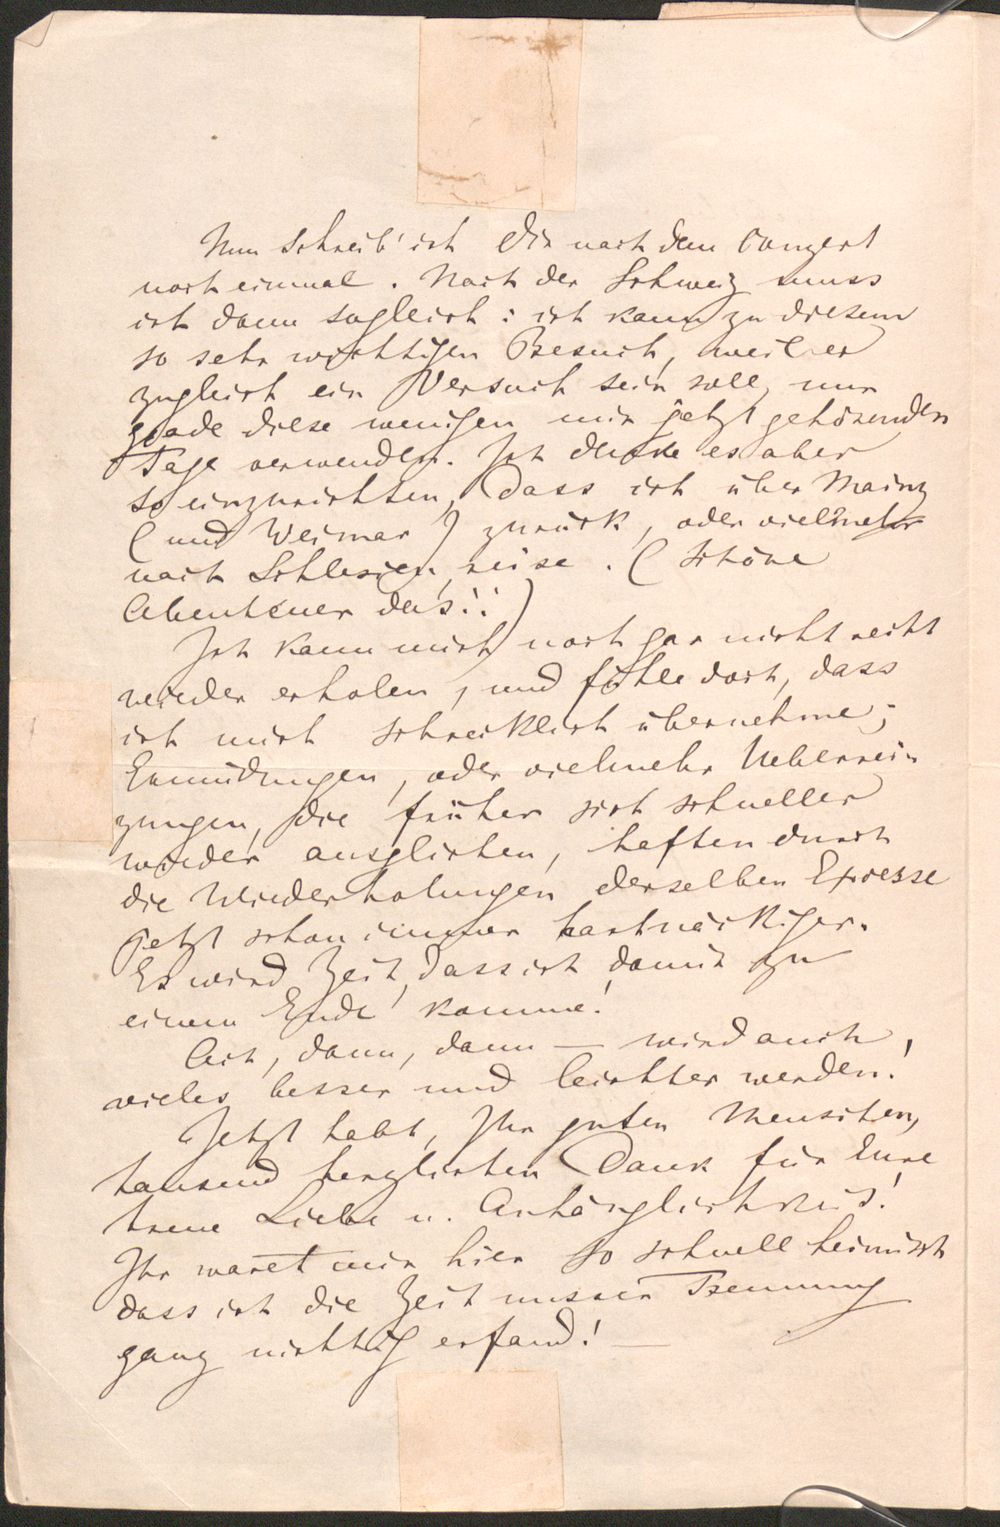 Nun schreib' ich Dir nach dem Conzert
noch einmal. Nach der Schweiz muss
ich dann sogleich: ich kann zu diesem
so sehr wichtigen Besuch, weil er
zugleich ein Versuch sein soll, nur
grade diese wenigen mir jetzt gehörenden
Tage verwenden. Ich denke es aber
so einzurichten, dass ich über Mainz
(und Weimar) zurück, oder vielmehr
nach Schlesien, reise. (Schöne
Abenteuer das!!)
Ich kann mich noch gar nicht recht
wieder erholen, und fühle doch, dass
ich mich schrecklich übernehme;
Ermüdungen, oder vielmehr Ueberrei-
zungen, die früher sich schneller
wieder ausglichen, haften durch
die Wiederholungen derselben Excesse
jetzt schon immer hartnäckiger.
Es wird Zeit, dass ich damit zu
einem Ende komme!
Ach, dann, dann — wird auch
vieles besser und leichter werden!
Jetzt habt, Ihr guten Menschen,
tausend herzlichen Dank für Eure
treue Liebe u. Anhänglichkeit!
Ihr waret mir hier so schnell heimisch
dass ich die Zeit unsrer Trennung
ganz nichtig erfand! —